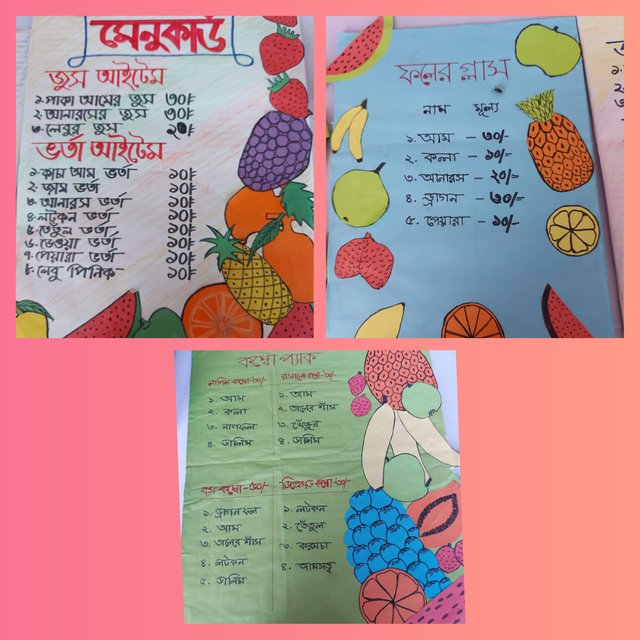 মেনুকার্ড
জুস আইটেম
১. পাকা আমের জুস ৩০৳
২. আনারসের জুস ৩০৳
৩. লেবুর জুস ২০৳
ভর্তা আইটেম
১. কাচা আম ভর্তা ১০৳
২. জাম ভর্তা ১০৳
৩. আনারস ভর্তা ১০৳
৪. লটকন ভর্তা ১০৳
৫. তেঁতুল ভর্তা ১০৳
৬. ডেওয়া ভর্তা ১০৳
৭. পেয়ারা ভর্তা ১০৳
৮. লেবু পিনিক ১০৳
ফলের গ্লাস
নাম মূল্য
১. আম - ৩০/-
২. কলা - ১০/-
৩. আনারস - ২০/-
৪. ড্রাগন - ৩০/-
৫. পেয়ারা - ১০/-
কম্বো প্যাক
কম্বো-৩০/-
১. আম
২. কলা
৩. নাগফল
৪. ডালিম
রসালো কম্বো-৩০/-
১. আম
২. তালের শাঁস
৩. খেঁজুর
৪. ডালিম
বস কম্বো-৫০/-
১. ড্রাগন ফল
২. আম
৩. তালের শাঁস
৪. লটকন
৫. ডালিম
কম্বো-৩০/-
১. লটকন
২. তেঁতুল
৩. করমচা
৪. আমসত্ত্ব